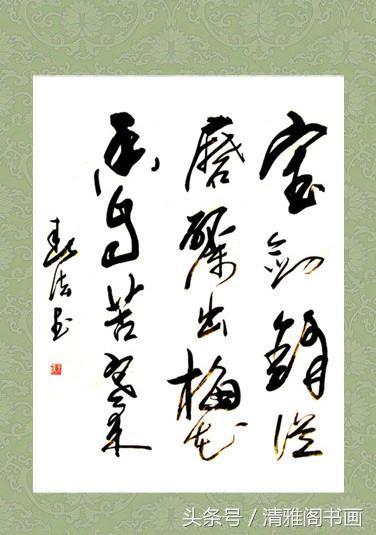 宝剑鋒從
磨礪出梅花
香自苦寒来
头条号 / 清雅阁书画